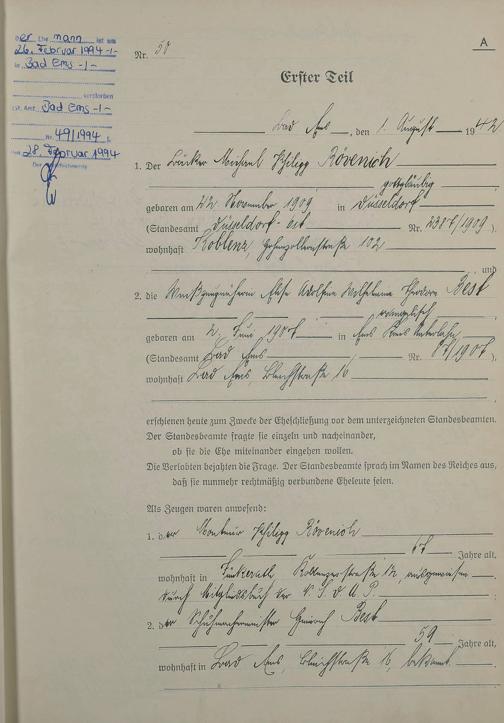 Der Ehemann ist am
26. Februar 1994 -/-
in Bad Ems -/-
verstorben
St. Amt Bad Ems -/-
Nr. 49/1994
Den 28. Februar 1994
Der Standesbeamte
A
Nr. 50
Erster Teil
Bad Ems, den 1. August 1942
1. Der Bäcker Michael Philipp Rövenich
gottgläubig
geboren am 22. November 1909 in Düsseldorf
(Standesamt Düsseldorf-Ost Nr. /1909)
wohnhaft Koblenz, Hohenzollernstraße 102
und
2. die Adolfine Wilhelmine Best
evangelisch
geboren am 2. Juni 1907 in Ems Kreis Unterlahn
(Standesamt Bad Ems Nr. 87/1907)
wohnhaft Bad Ems, Bleichstraße 16
erschienen heute zum Zwecke der Eheschließung vor dem unterzeichneten Standesbeamten.
Der Standesbeamte fragte sie einzeln und nacheinander,
ob sie die Ehe miteinander eingehen wollen.
Die Verlobten bejahten die Frage. Der Standesbeamte sprach im Namen des Reiches aus,
daß sie nunmehr rechtmäßig verbundene Eheleute seien.
Als Zeugen waren anwesend:
1. der Philipp Rövenich
Jahre alt,
wohnhaft in ausgewiesen
durch Mitgliedsbuch der N.S.D.A.P.
2. der Schuhmachermeister Heinrich Best
59 Jahre alt,
wohnhaft in Bad Ems, Bleichstraße 16, bekannt.